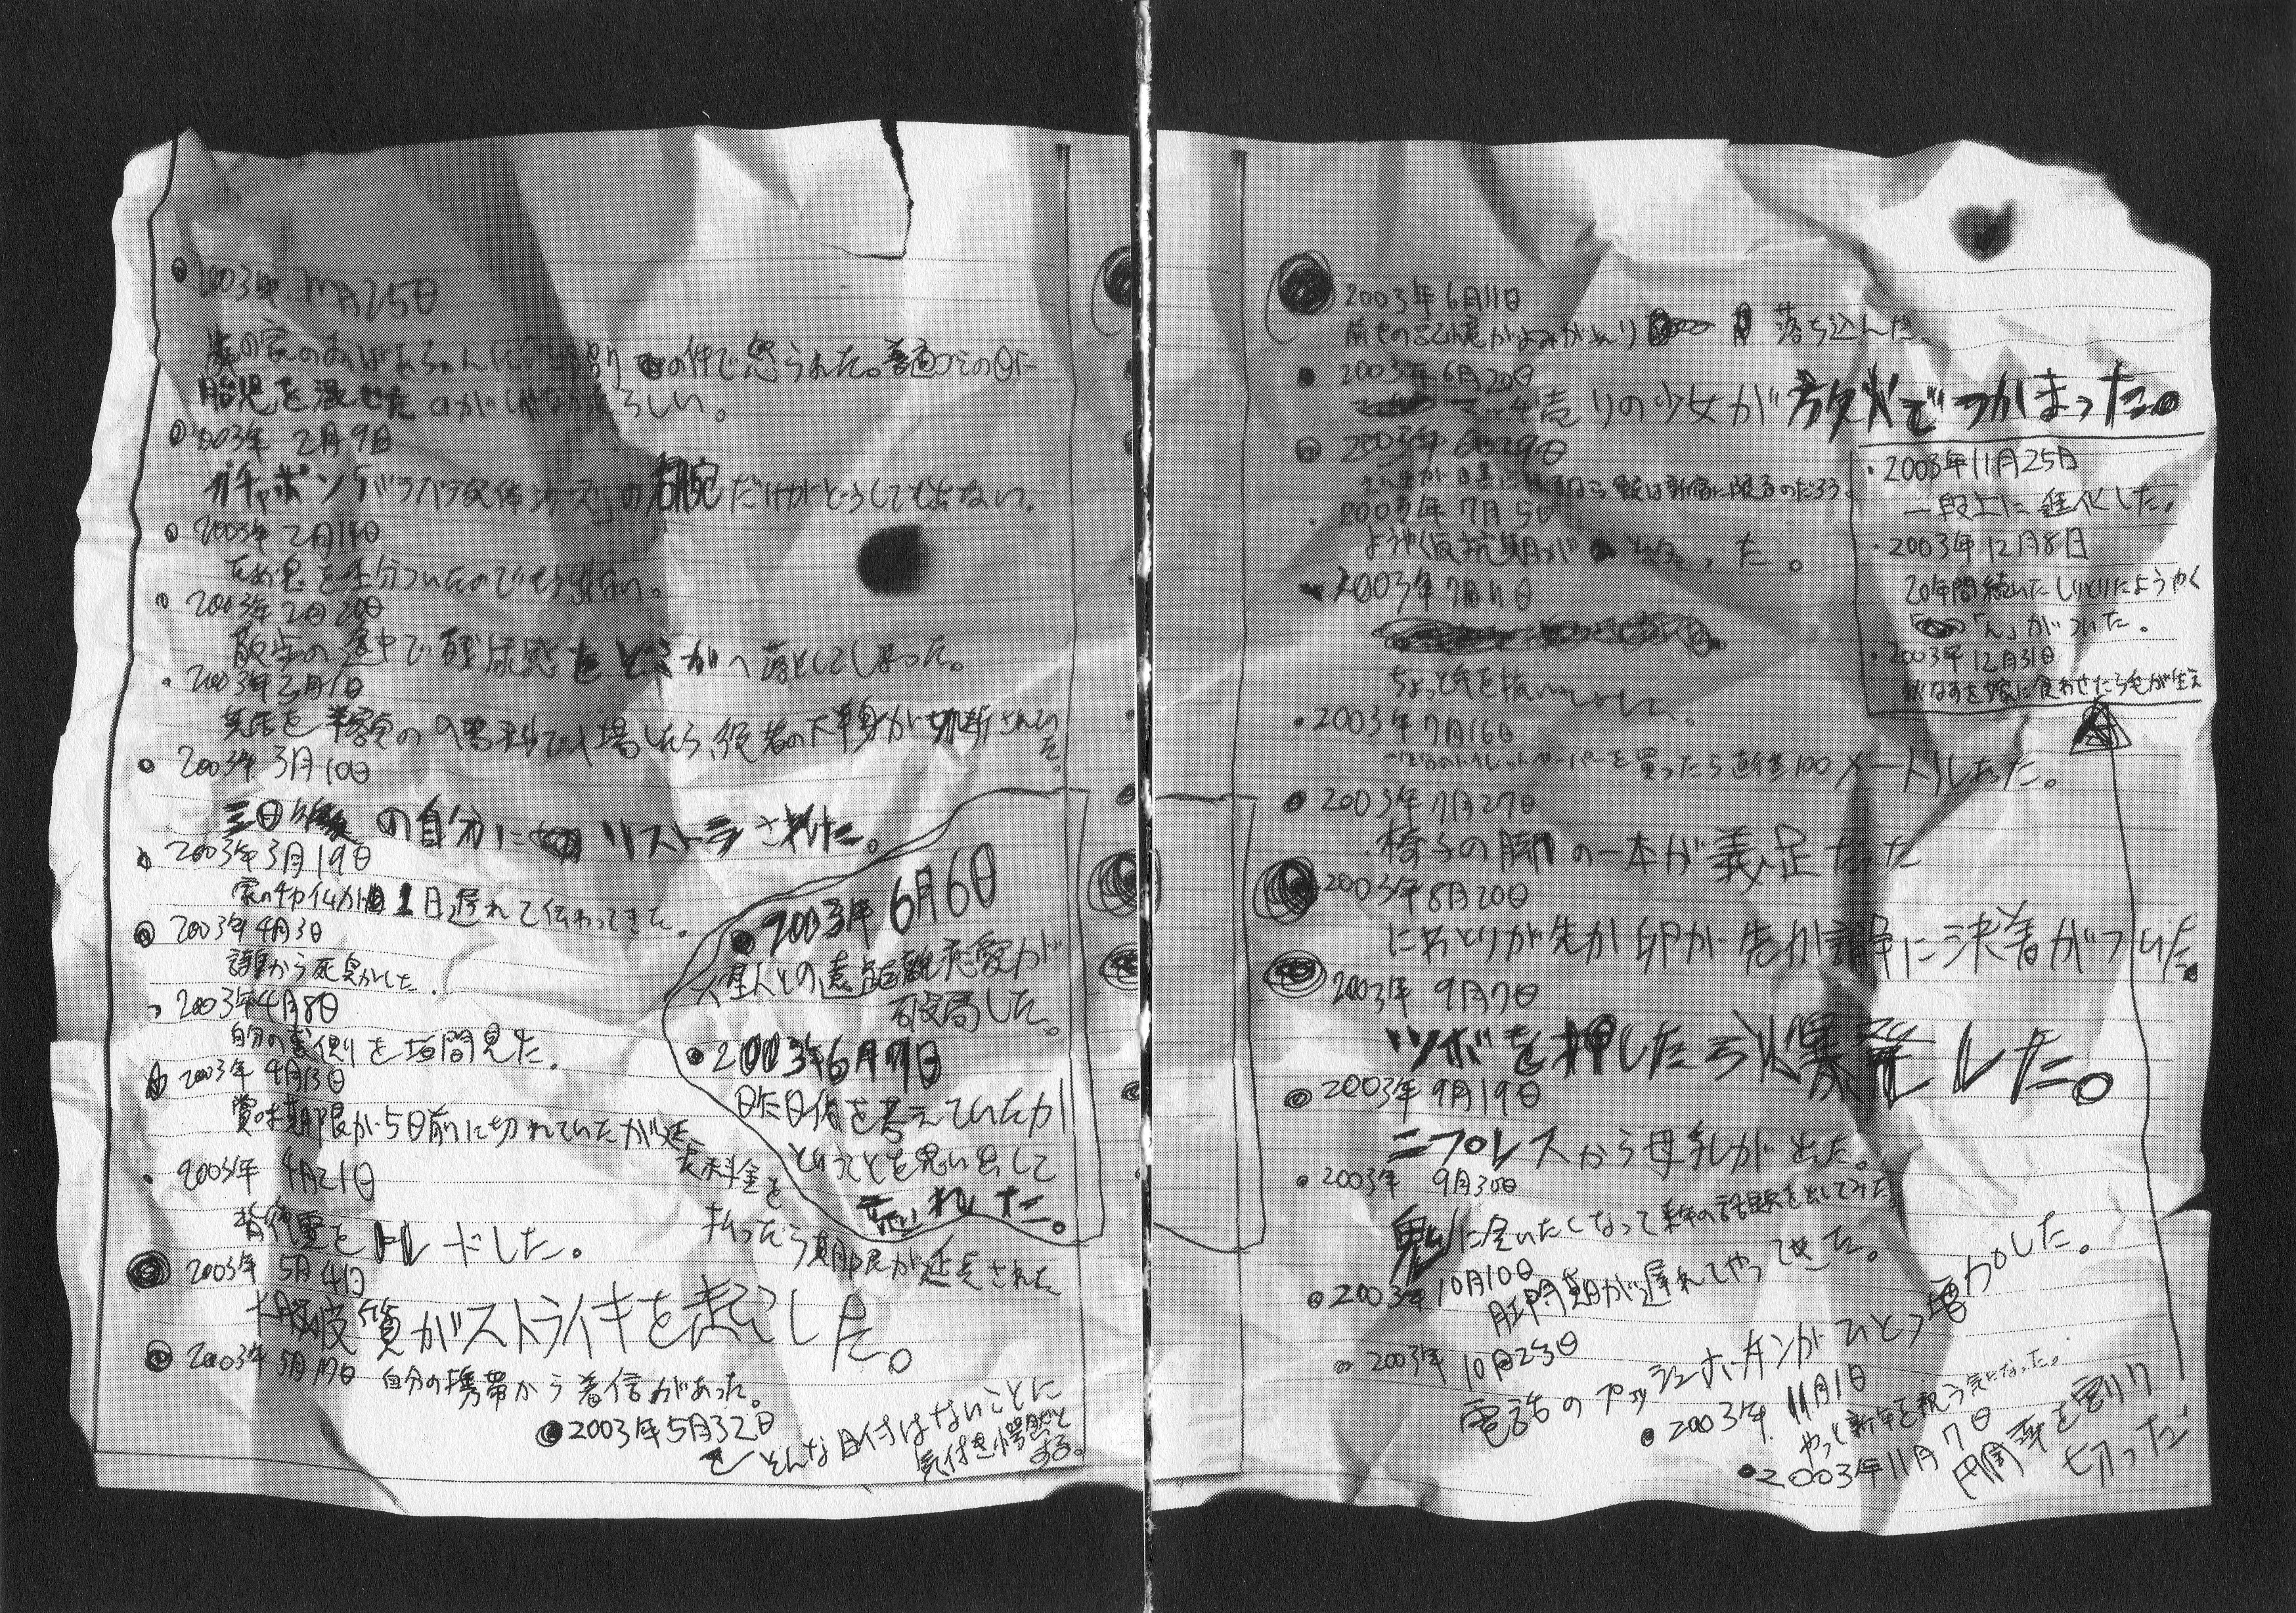 2003年 1月25日
の家のおばあちゃんに の件で怒られた。普通ゴミの日に
胎児を混ぜた のがいけなかったらしい。
2003年 2月9日
ガチャポン「バラバラ死体シリーズ」の右腕だけがどうしても出ない。
2003年 2月14日
ため息を 分ついたのでもう出ない。
2003年2月20日
散歩の途中で残尿感をどこかへ落としてしまった。
2003年3月1日
を半額の入場料で入場したら、役者の下半身が切断されてい
た。
2003年 3月10日
三日後の自分に リストラされた。
2003年3月19日
家の 1日遅れて伝わってきた。
2003年4月3日
から死臭がした。
2003年4月8日
自分の裏側を垣間見た。
2003年 4月13日
賞味期限が5日前に切れていたが延
長料金を
払ったら期限が延長された
2003年 4月21日
背後霊をトレードした。
2003年 5月4日
大脳皮質がストライキを起こした。
2003年5月17日 自分の携帯から着信があった。
2003年5月32日
そんな日付はないことに
気付き愕然と
する。
2003年 6月6日
火星人との遠距離恋愛が
破局した。
2003年6月7日
昨日何を考えていたか
ということを思い出して
荒れた。
2003年6月11日
前世の記憶がよみがえり 落ち込んだ。
2003年6月20日
マッチ売りの少女が放火でつかまった。
2003年6月29日
さんまが目黒に限るなら 新宿に限るのだろう。
2003年 7月5日
ようやく反抗期が った。
2003年7月11日
ちょっと気を抜い
2003年7月16日
トイレットペーパーを買ったら直径100メートルあった。
2003年7月27日
椅子の脚の一本が義足だった
2003年8月20日
にわとりが先か卵が先か論争に決着がついた。
2003年 9月7日
ツボを押したら爆発した。
2003年 9月19日
ニプレスから母乳が出た。
2003年 9月30日
鬼に会いたくなって来年の話題を出してみた。
2003年 10月10日
肛門期が遅れてやって来た。
2003年 10月23日
電話のプッシュホンボタンがひとつ増加した。
2003年 11月1日
やっと新年を祝う気になった。
2003年11月7日
円周率を割り
切った
2003年11月25日
一段上に進化した。
2003年12月8日
20年間続いたしりとりにようやく
「ん」がついた。
2003年12月31日
秋なすを嫁に食わせたら毛が生え